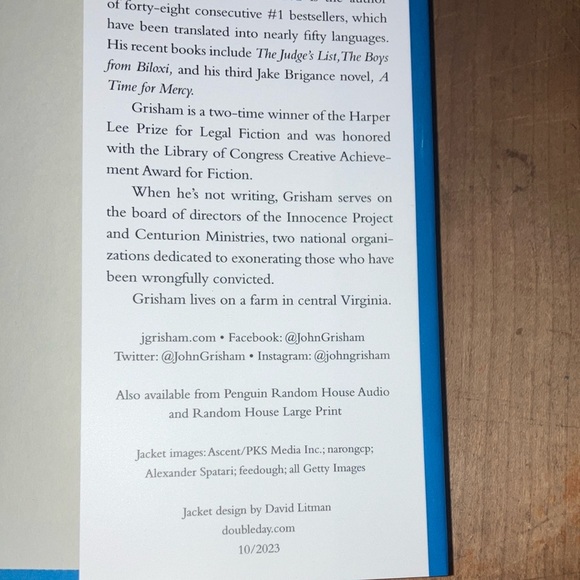 of forty-eight consecutive #1 bestsellers, which
have been translated into nearly fifty languages.
His recent books include The Judge's List, The Boys
from Biloxi, and his third Jake Brigance novel, A
Time for Mercy.
Grisham is a two-time winner of the Harper
Lee Prize for Legal Fiction and was honored
with the Library of Congress Creative Achieve-
ment Award for Fiction.
When he's not writing, Grisham serves on
the board of directors of the Innocence Project
and Centurion Ministries, two national organi-
zations dedicated to exonerating those who have
been wrongfully convicted.
Grisham lives on a farm in central Virginia.
jgrisham.com • Facebook: @JohnGrisham
Twitter: @JohnGrisham • Instagram: @johngrisham
Also available from Penguin Random House Audio
and Random House Large Print
Jacket images: Ascent/PKS Media Inc.; narongcp;
Alexander Spatari; feedough; all Getty Images
Jacket design by David Litman
doubleday.com
10/2023